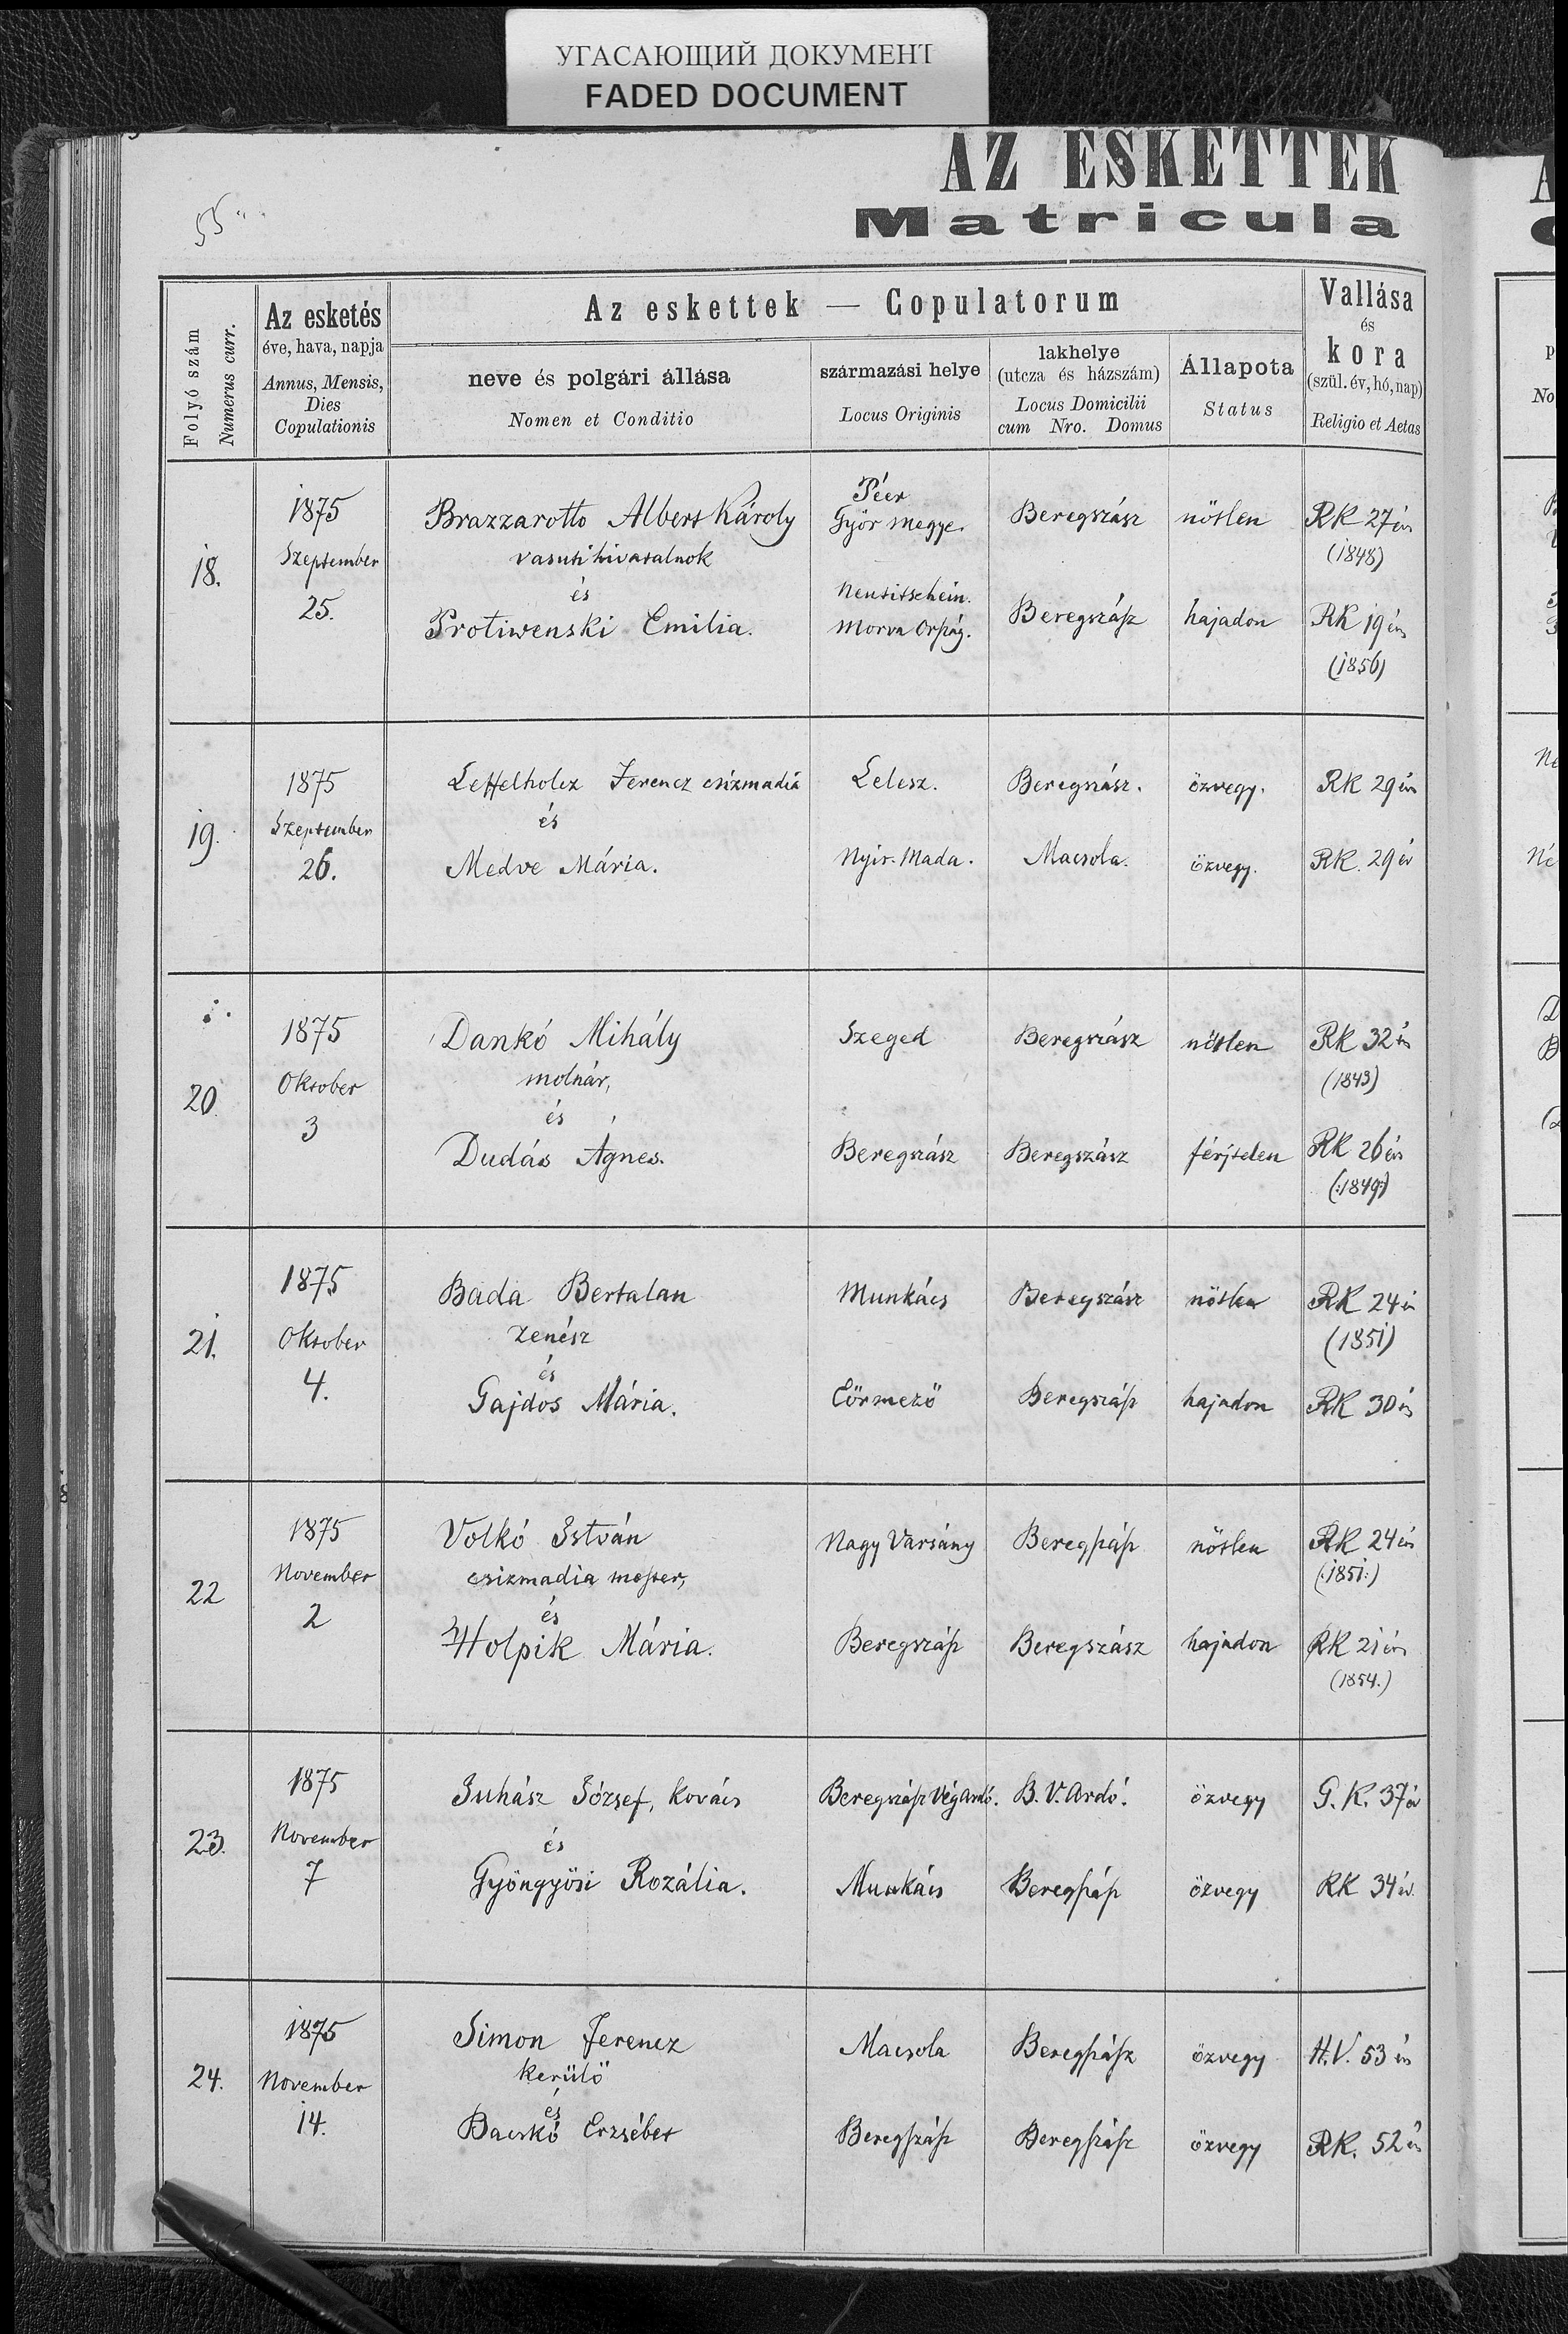 УГАСАЮЩИЙ ДОКУМЕНТ
FADED DOCUMENT
AZ ESKETTEK
Matricula
55
Folyó szám
Numerus curr.
Az esketés
éve, hava, napja
Annus, Mensis,
Dies
Copulationis
Az eskettek — Copulatorum
neve és polgári állása
Nomen et Conditio
származási helye
Locus Originis
lakhelye
(utcza és házszám)
Locus Domicilii
cum Nro. Domus
Állapota
Status
Vallása
és
kora
(szül. év, hó, nap)
Religio et Aetas
18.
1875
Szeptember
25.
Brazzarotto Albert Károly
vasuti hivatalnok
és
Protiwenski Emilia.
Péer
Győr megye.
Neutitschein.
Morva Ország.
Beregszász
Beregszász
nőtlen
hajadon
RK 27 év
(1848)
RK 19 év
(1856)
19.
1875
Szeptember
26.
Leffelholcz Ferencz csizmadia
és
Medve Mária.
Lelesz.
Nyir. Mada.
Beregszász.
Macsola.
özvegy.
özvegy.
RK 29 év
RK. 29 év
20.
1875
Oktober
3
Dankó Mihály
molnár,
és
Dudás Ágnes.
Szeged
Beregszász
Beregszász
Beregszász
nőtlen
férjtelen
RK 32 év
(1843)
RK 26 év
(:1849:)
21.
1875
Oktober
4.
Bada Bertalan
zenész
és
Gajdos Mária.
Munkács
Cörmező
Beregszász
Beregszász
nőtlen
hajadon
RK 24 év
(1851)
RK 30 év
22
1875
November
2
Volkó István
csizmadia mester,
és
Holpik Mária.
Nagy Varsány
Beregszász
Beregszász
Beregszász
nőtlen
hajadon
RK 24 év
(:1851:)
RK 21 év
(1854.)
23.
1875
November
7
Juhász József, kovács
és
Gyöngyösi Rozália.
Beregszász Végardó.
Munkács
B. V. Ardó.
Beregszász
özvegy
özvegy
G. K. 37 év
RK 34 év.
24.
1875
November
14.
Simon Ferencz
kerülő
és
Bacskó Erzsébet
Macsola
Beregszász
Beregszász
Beregszász
özvegy
özvegy
H.V. 53 év
RK. 52 év